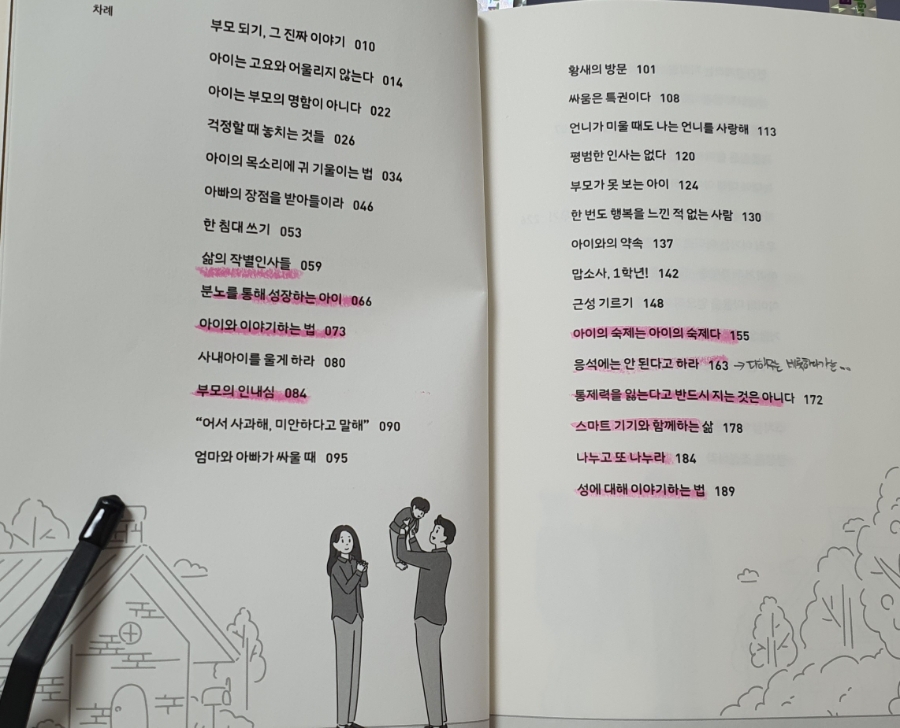 차례
부모 되기, 그 진짜 이야기 010
아이는 고요와 어울리지 않는다 014
아이는 부모의 명함이 아니다 022
걱정할 때 놓치는 것들 026
아이의 목소리에 귀 기울이는 법 034
아빠의 장점을 받아들이라 046
한 침대 쓰기 053
삶의 작별인사들 059
분노를 통해 성장하는 아이 066
아이와 이야기하는 법 073
사내아이를 울게 하라 080
부모의 인내심 084
“어서 사과해, 미안하다고 말해” 090
엄마와 아빠가 싸울 때 095
황새의 방문 101
싸움은 특권이다 108
언니가 미울 때도 나는 언니를 사랑해 113
평범한 인사는 없다 120
부모가 못 보는 아이 124
한 번도 행복을 느낀 적 없는 사람 130
아이와의 약속 137
맙소사, 1학년! 142
근성 기르기 148
아이의 숙제는 아이의 숙제다 155
응석에는 안 된다고 하라 163 →
통제력을 잃는다고 반드시 지는 것은 아니다 172
스마트 기기와 함께하는 삶 178
나누고 또 나누라 184
성에 대해 이야기하는 법 189